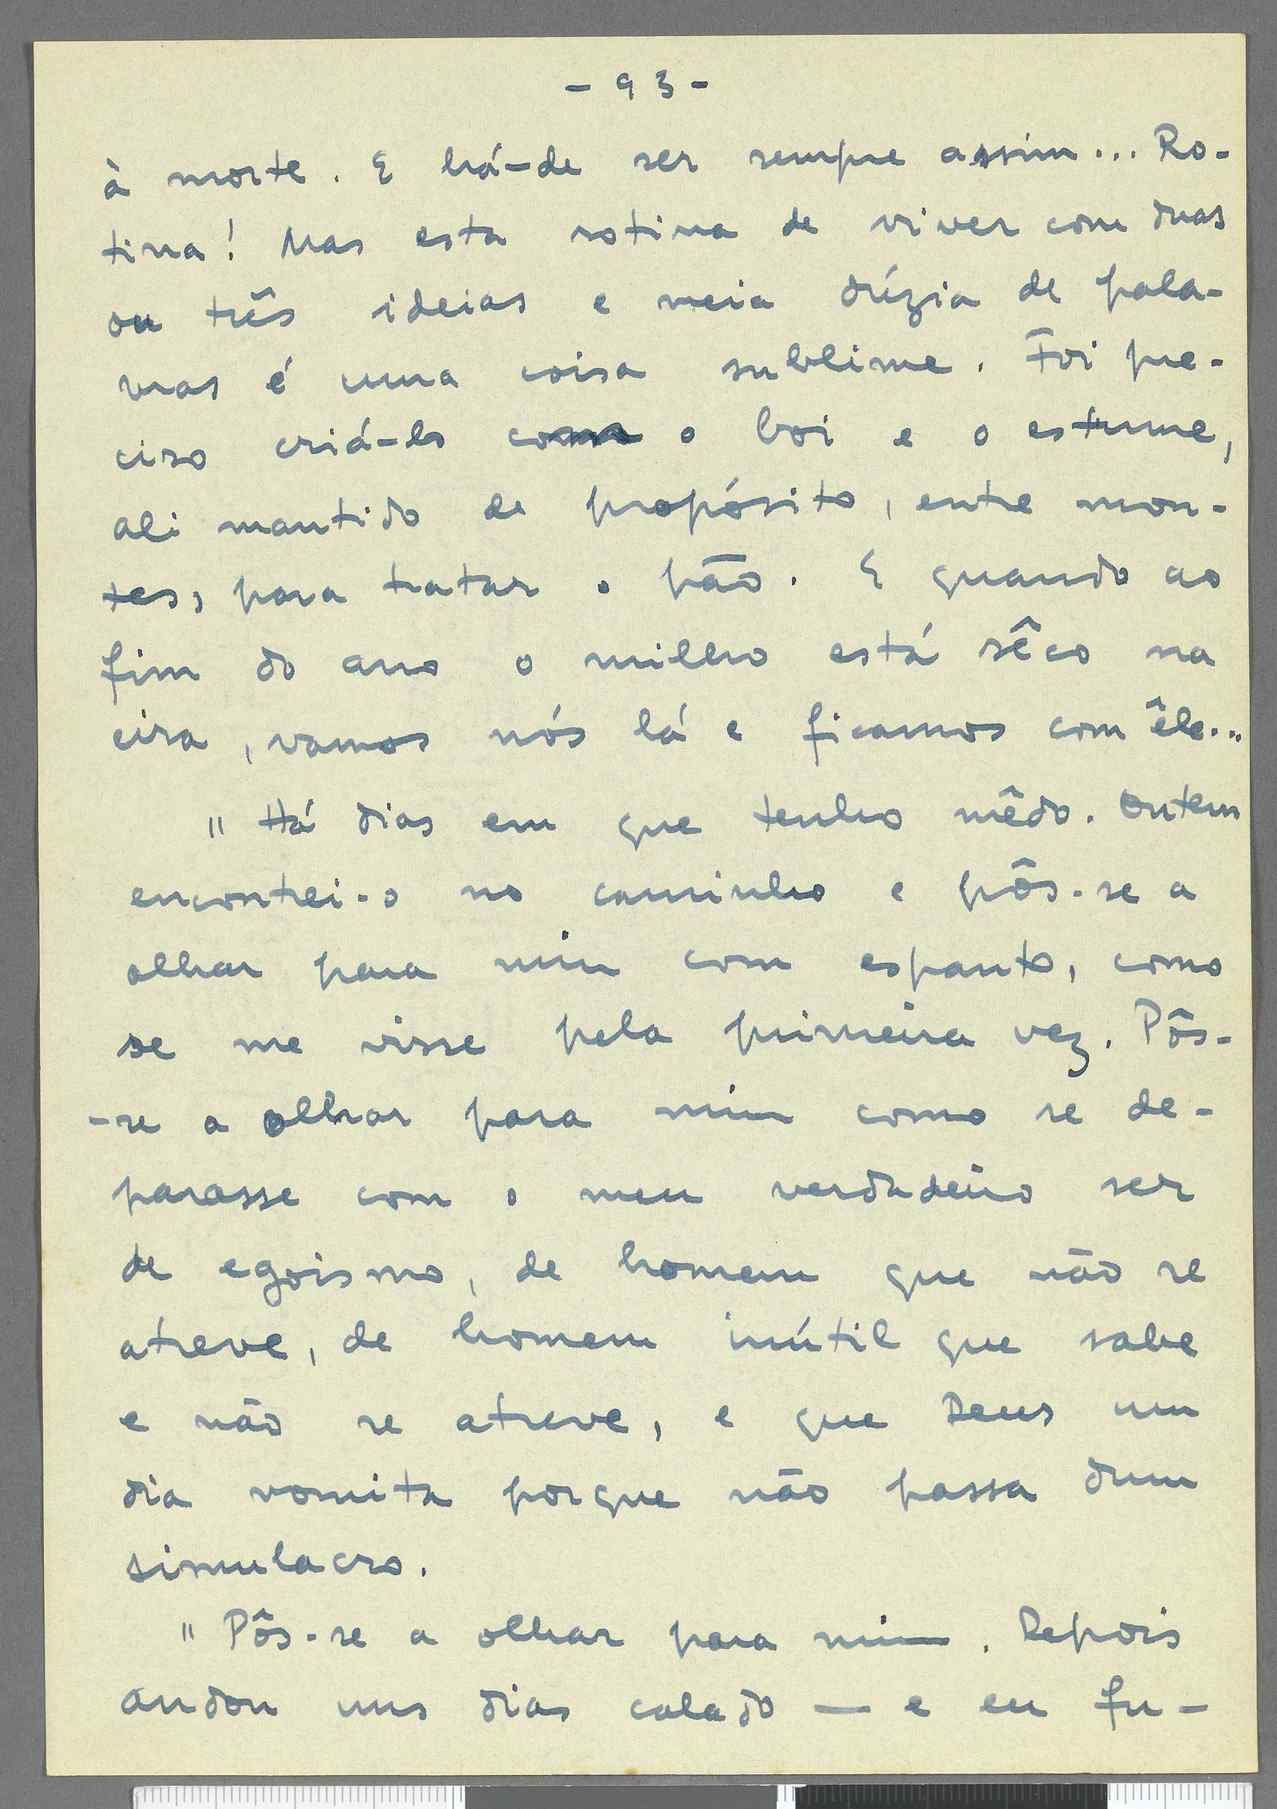 - 93 -
à morte. E há-de ser sempre assim... Ro-
tina! Mas esta rotina de viver com duas
ou três ideias e meia dúzia de pala-
vras é uma coisa sublime. Foi pre-
ciso criá-los com o boi e o estrume,
ali mantido de propósito, entre mon-
tes, para tratar o pão. E quando ao
fim do ano o milho está sêco na
eira, vamos nós lá e ficamos com êle...
" Há dias em que tenho mêdo. Ontem
encontrei-o no caminho e pôs-se a
olhar para mim com espanto, como
se me visse pela primeira vez. Pôs-
-se a olhar para mim como se de-
parasse com o meu verdadeiro ser
de egoismo, de homem que não se
atreve, de homem inútil que sabe
e não se atreve, e que Deus um
dia vomita porque não passa dum
simulacro.
" Pôs-se a olhar para mim. Depois
andou uns dias calado — e eu fu-